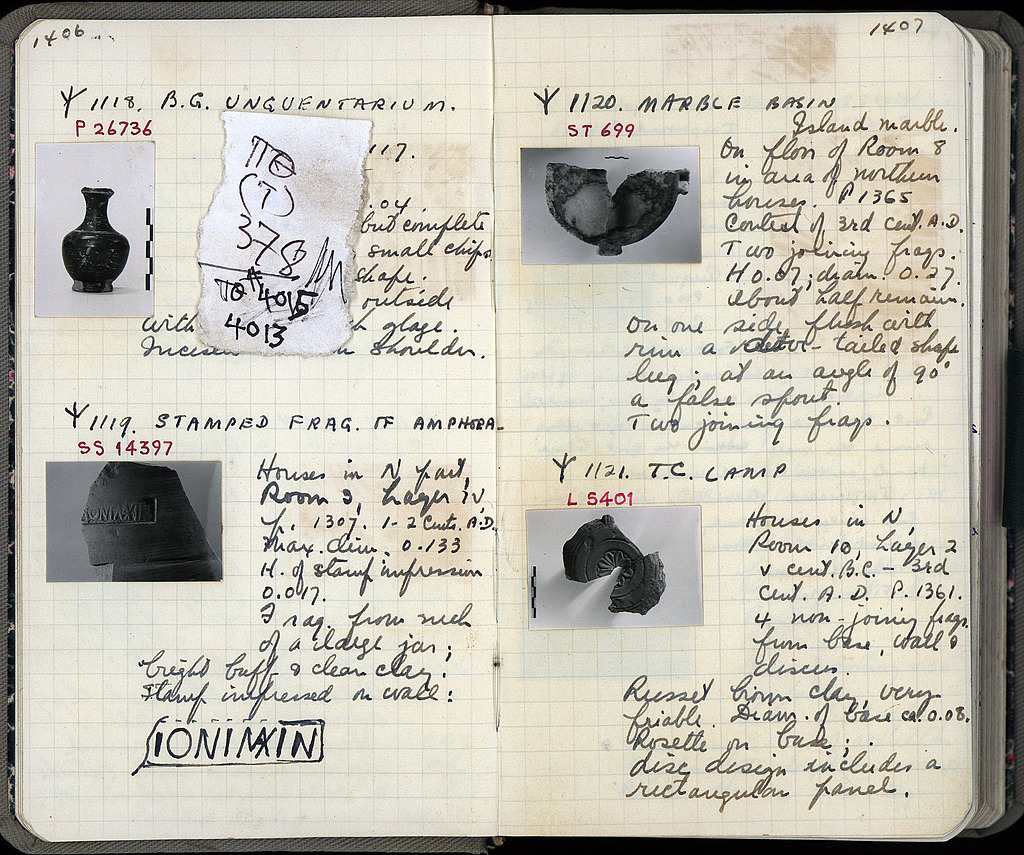 1406
Ψ 1118. B.G. UNGUENTARIUM.
P 26736
117.
.04
but complete
small chips
shape.
outside
with h glaze.
Incised shoulder.
ΠΘ
(T)
378
ΠΘ 4015
4013
Ψ 1119. STAMPED FRAG. OF AMPHORA
SS 14397
Houses in N part,
Room 3, Layer IV,
p. 1307. 1-2 Cents. A.D.
Max. dim. 0.133
H. of stamp impression
0.017.
Frag. from neck
of a large jar;
bright buff & clean clay.
Stamp impressed on wall:
IONIMXIN
1407
Ψ 1120. MARBLE BASIN
ST 699
Island marble.
On floor of Room 8
in area of northern
houses. P 1365
Context of 3rd cent. A.D.
Two joining frags.
H 0.07; diam. 0.27.
About half remain.
On one side, flush with
rim a tailed shape
leg; at an angle of 90°
a false spout.
Two joining frags.
Ψ 1121. T.C. LAMP
L 5401
Houses in N,
Room 10, Layer 2
V cent. B.C. – 3rd
cent. A.D. P. 1361.
4 non-joining frags.
from base, wall &
discus.
Russet brown clay, very
friable. Diam. of base ca. 0.08.
Rosette on base;
disc design includes a
rectangular panel.